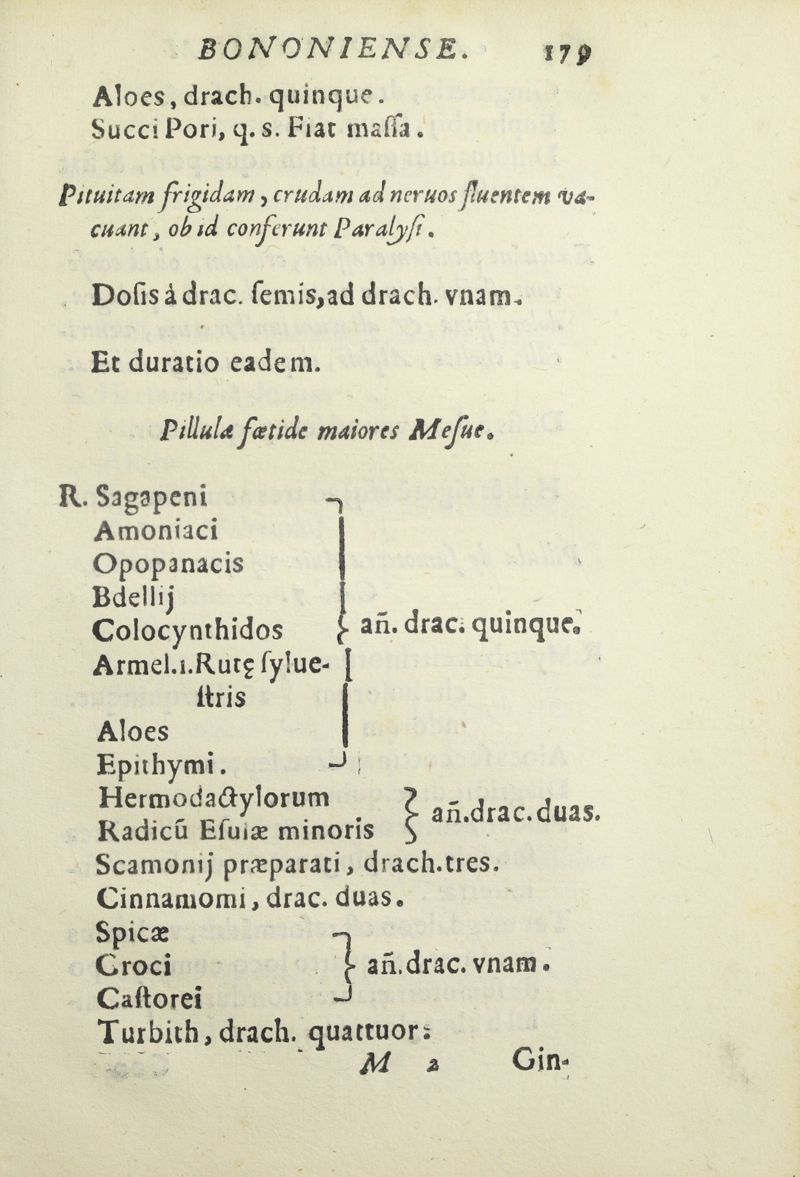 BONONIENSE. 179
Aloes, drach. quinque.
Succi Pori, q. s. Fiat maſſa.
Pituitam frigidam, crudam ad neruos fluentem va-
cuant, ob id conferunt Paralyſi.
Doſis á drac. ſemis, ad drach. vnam.
Et duratio eadem.
Pillulæ fœtide maiores Meſue.
R. Sagapeni
Amoniaci
Opopanacis
Bdellij
Colocynthidos } añ. drac. quinque.
Armel.i.Rutę ſylue-
ſtris
Aloes
Epithymi.
Hermodactylorum
Radicū Eſuiæ minoris } añ.drac.duas.
Scamonij præparati, drach.tres.
Cinnamomi, drac. duas.
Spicæ
Croci } añ.drac. vnam.
Caſtorei
Turbith, drach. quattuor.
M 2 Gin-